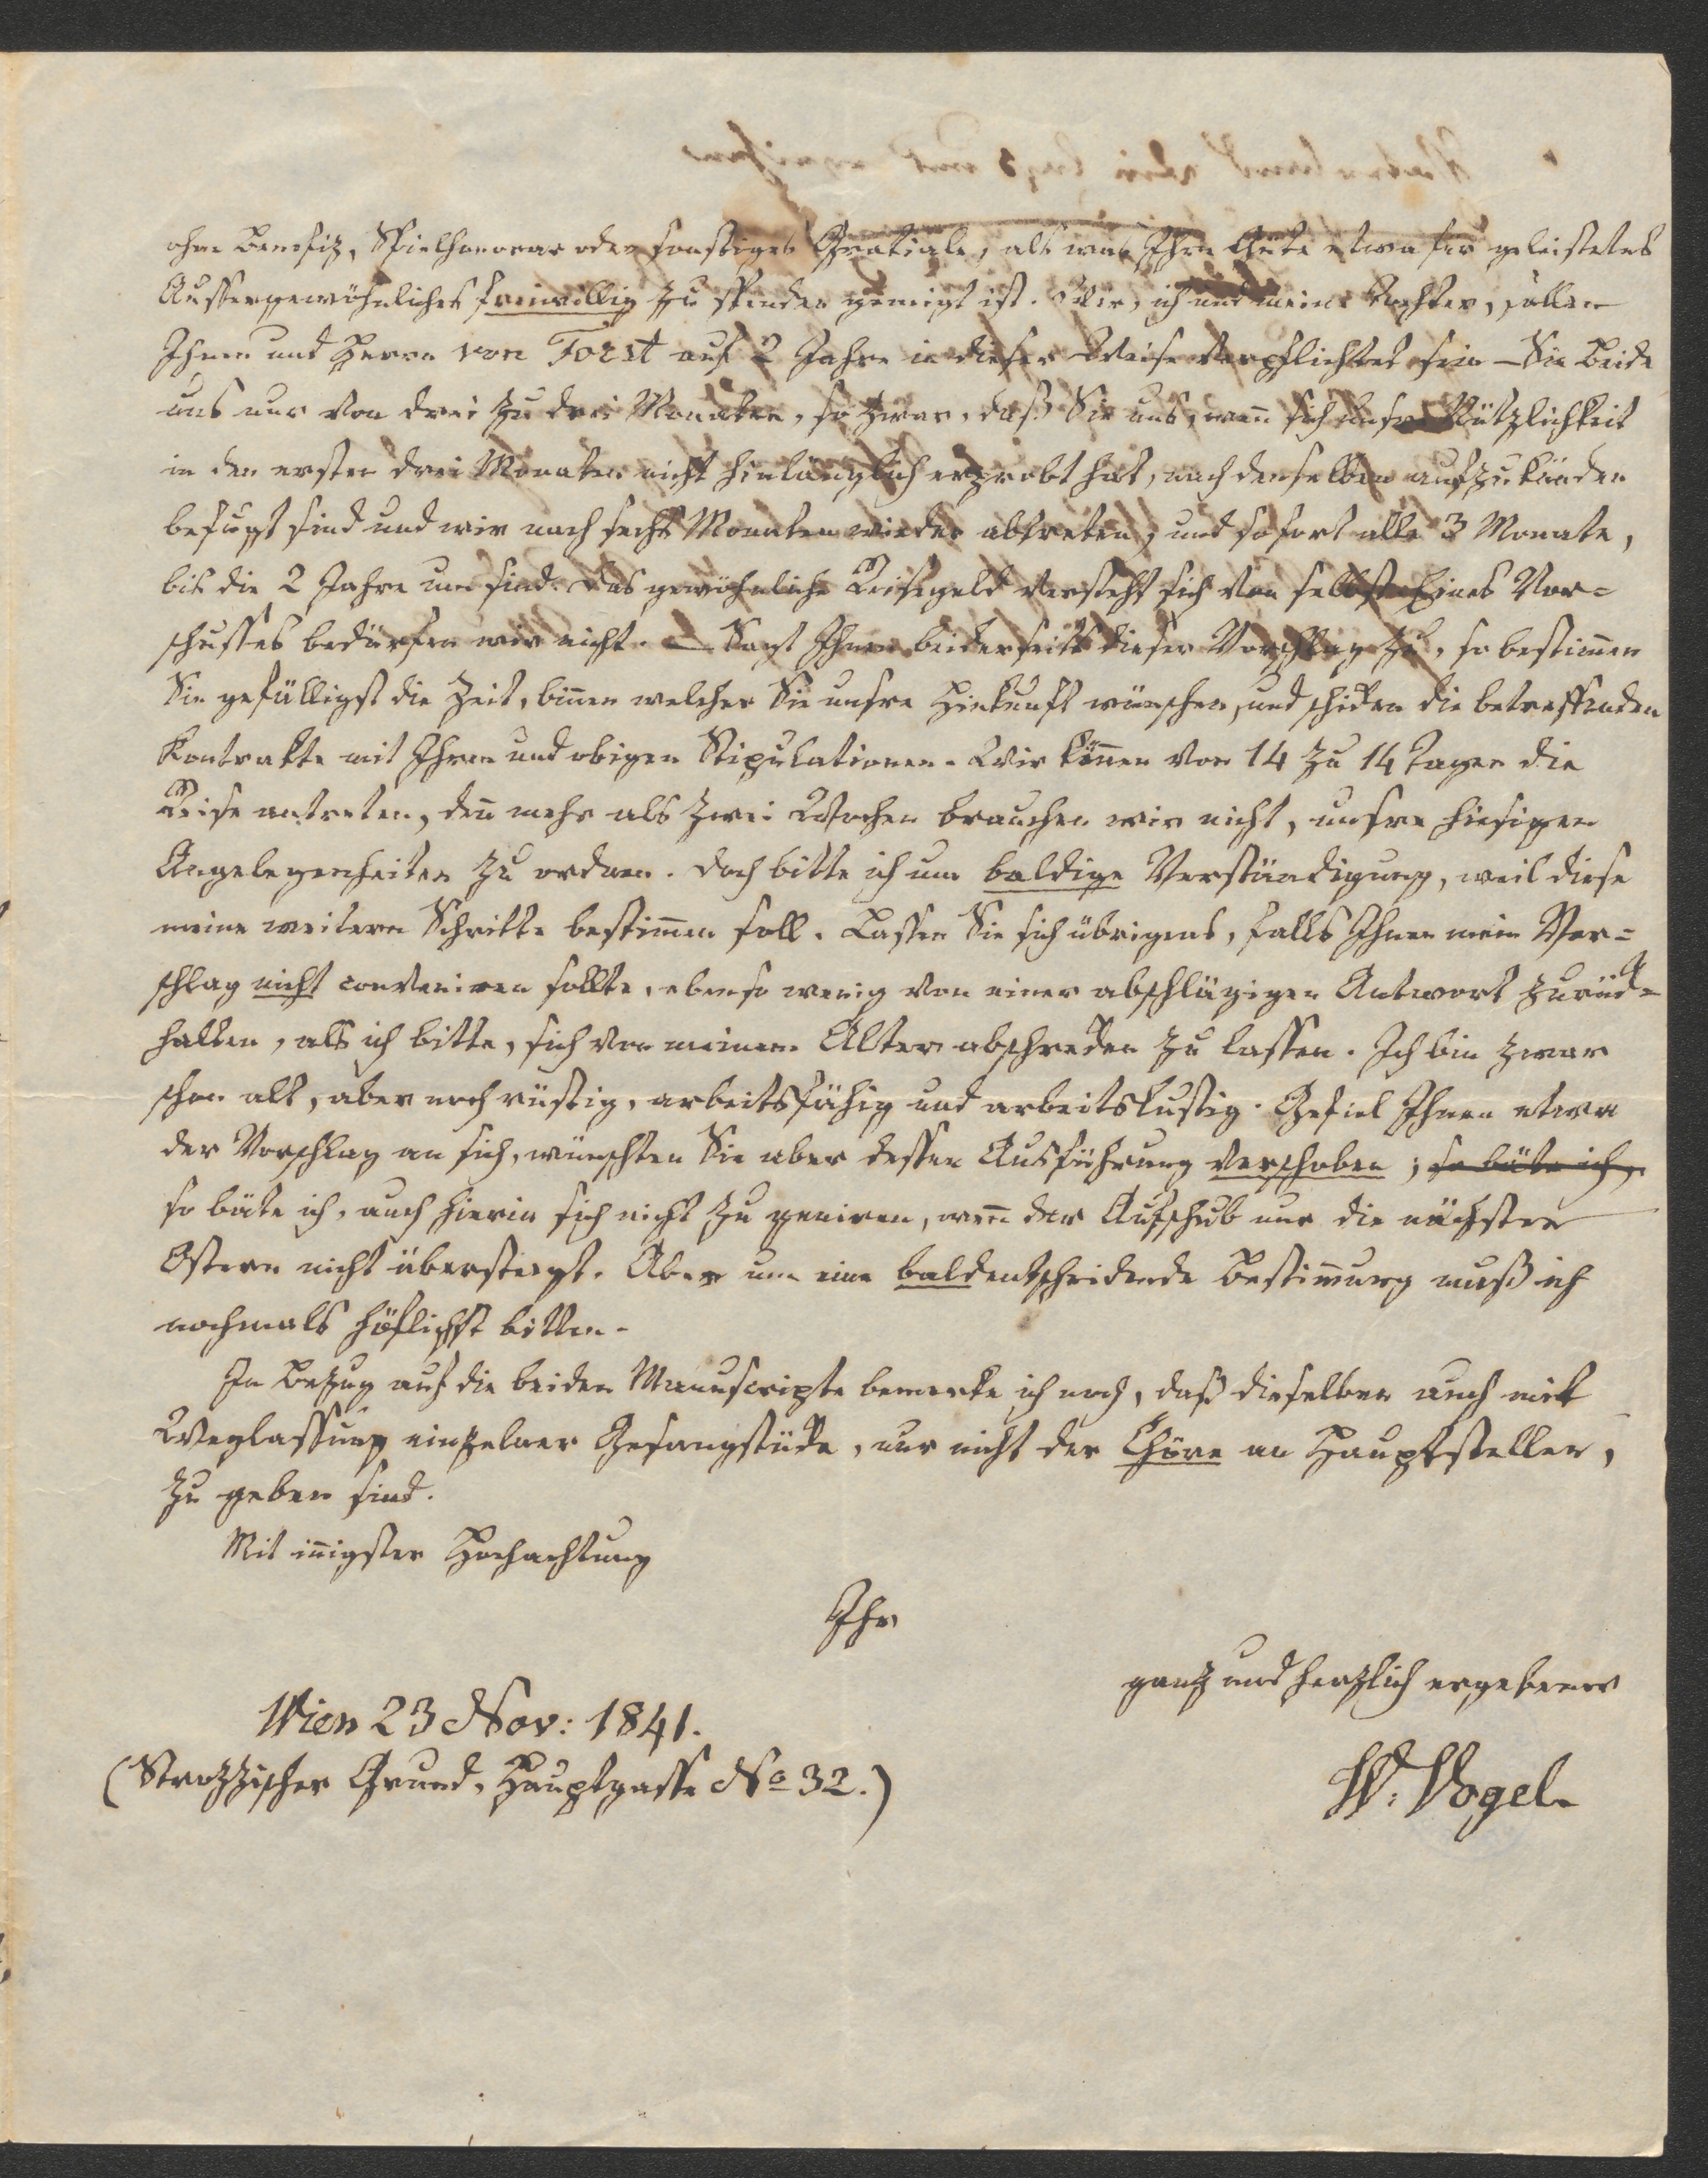 ohne Benefiz, Spielhonorar oder sonstiges Gratiale, als was Ihre Güte etwa für geleistetes
Aussergewöhnliches freiwillig zu spenden geneigt ist. Wir, ich und meine Tochter, sollen
Ihnen und Herrn von Forst auf 2 Jahre in dieser Weise verpflichtet sein – Sie Beide
uns nur von drei zu drei Monaten, so zwar, daß Sie uns, wenn sich unsre Nützlichkeit
in den ersten drei Monaten nicht hinlänglich erprobt hat, nach denselben aufzukünden
befugt sind und wir nach sechs Monaten wieder abtreten, und sofort alle 3 Monate,
bis die 2 Jahre um sind. Das gewöhnliche Reisegeld versteht sich von selbst. Eines Vor=
schusses bedürfen wir nicht. – Sagt Ihnen beiderseits dieser Vorschlag zu, so bestim̄en
Sie gefälligst die Zeit, bin̄en welcher Sie unsre Hinkunft wünschen, und schicken die betreffenden
Kontrakte mit Ihren und obigen Stipulationen. Wir kön̄en von 14 zu 14 Tagen die
Reise antreten, den̄ mehr als zwei Wochen brauchen wir nicht, unsre hiesigen
Angelegenheiten zu ordnen. Doch bitte ich um baldige Verständigung, weil diese
meine weitern Schritte bestim̄en soll. Lassen Sie sich übrigens, falls Ihnen mein Vor=
schlag nicht conveniren sollte, ebenso wenig von einer abschlägigen Antwort zurück=
halten, als ich bitte, sich von meinem Alter abschrecken zu lassen. Ich bin zwar
schon alt, aber noch rüstig, arbeitsfähig und arbeitslustig. Gefiel Ihnen etwa
der Vorschlag an sich, wünschten Sie aber dessen Ausführung verschoben; so bäte ich,
so bäte ich, auch hierin sich nicht zu geniren, wen̄ der Aufschub nur die nächsten
Ostern nicht übersteigt. Aber um eine baldentscheidende Bestim̄ung muß ich
nochmals höflichst bitten.
In Bezug auf die beiden Manuscripte bemerke ich noch, daß dieselben auch mit
Weglassung einzelner Gesangstücke, nur nicht der Chöre an Hauptstellen,
zu geben sind.
Mit in̄igster Hochachtung
Ihr
ganz und herzlich ergebener
Wien 23 Nov: 1841.
(Strozzischer Grund, Hauptgasse No 32.)
W. Vogel.